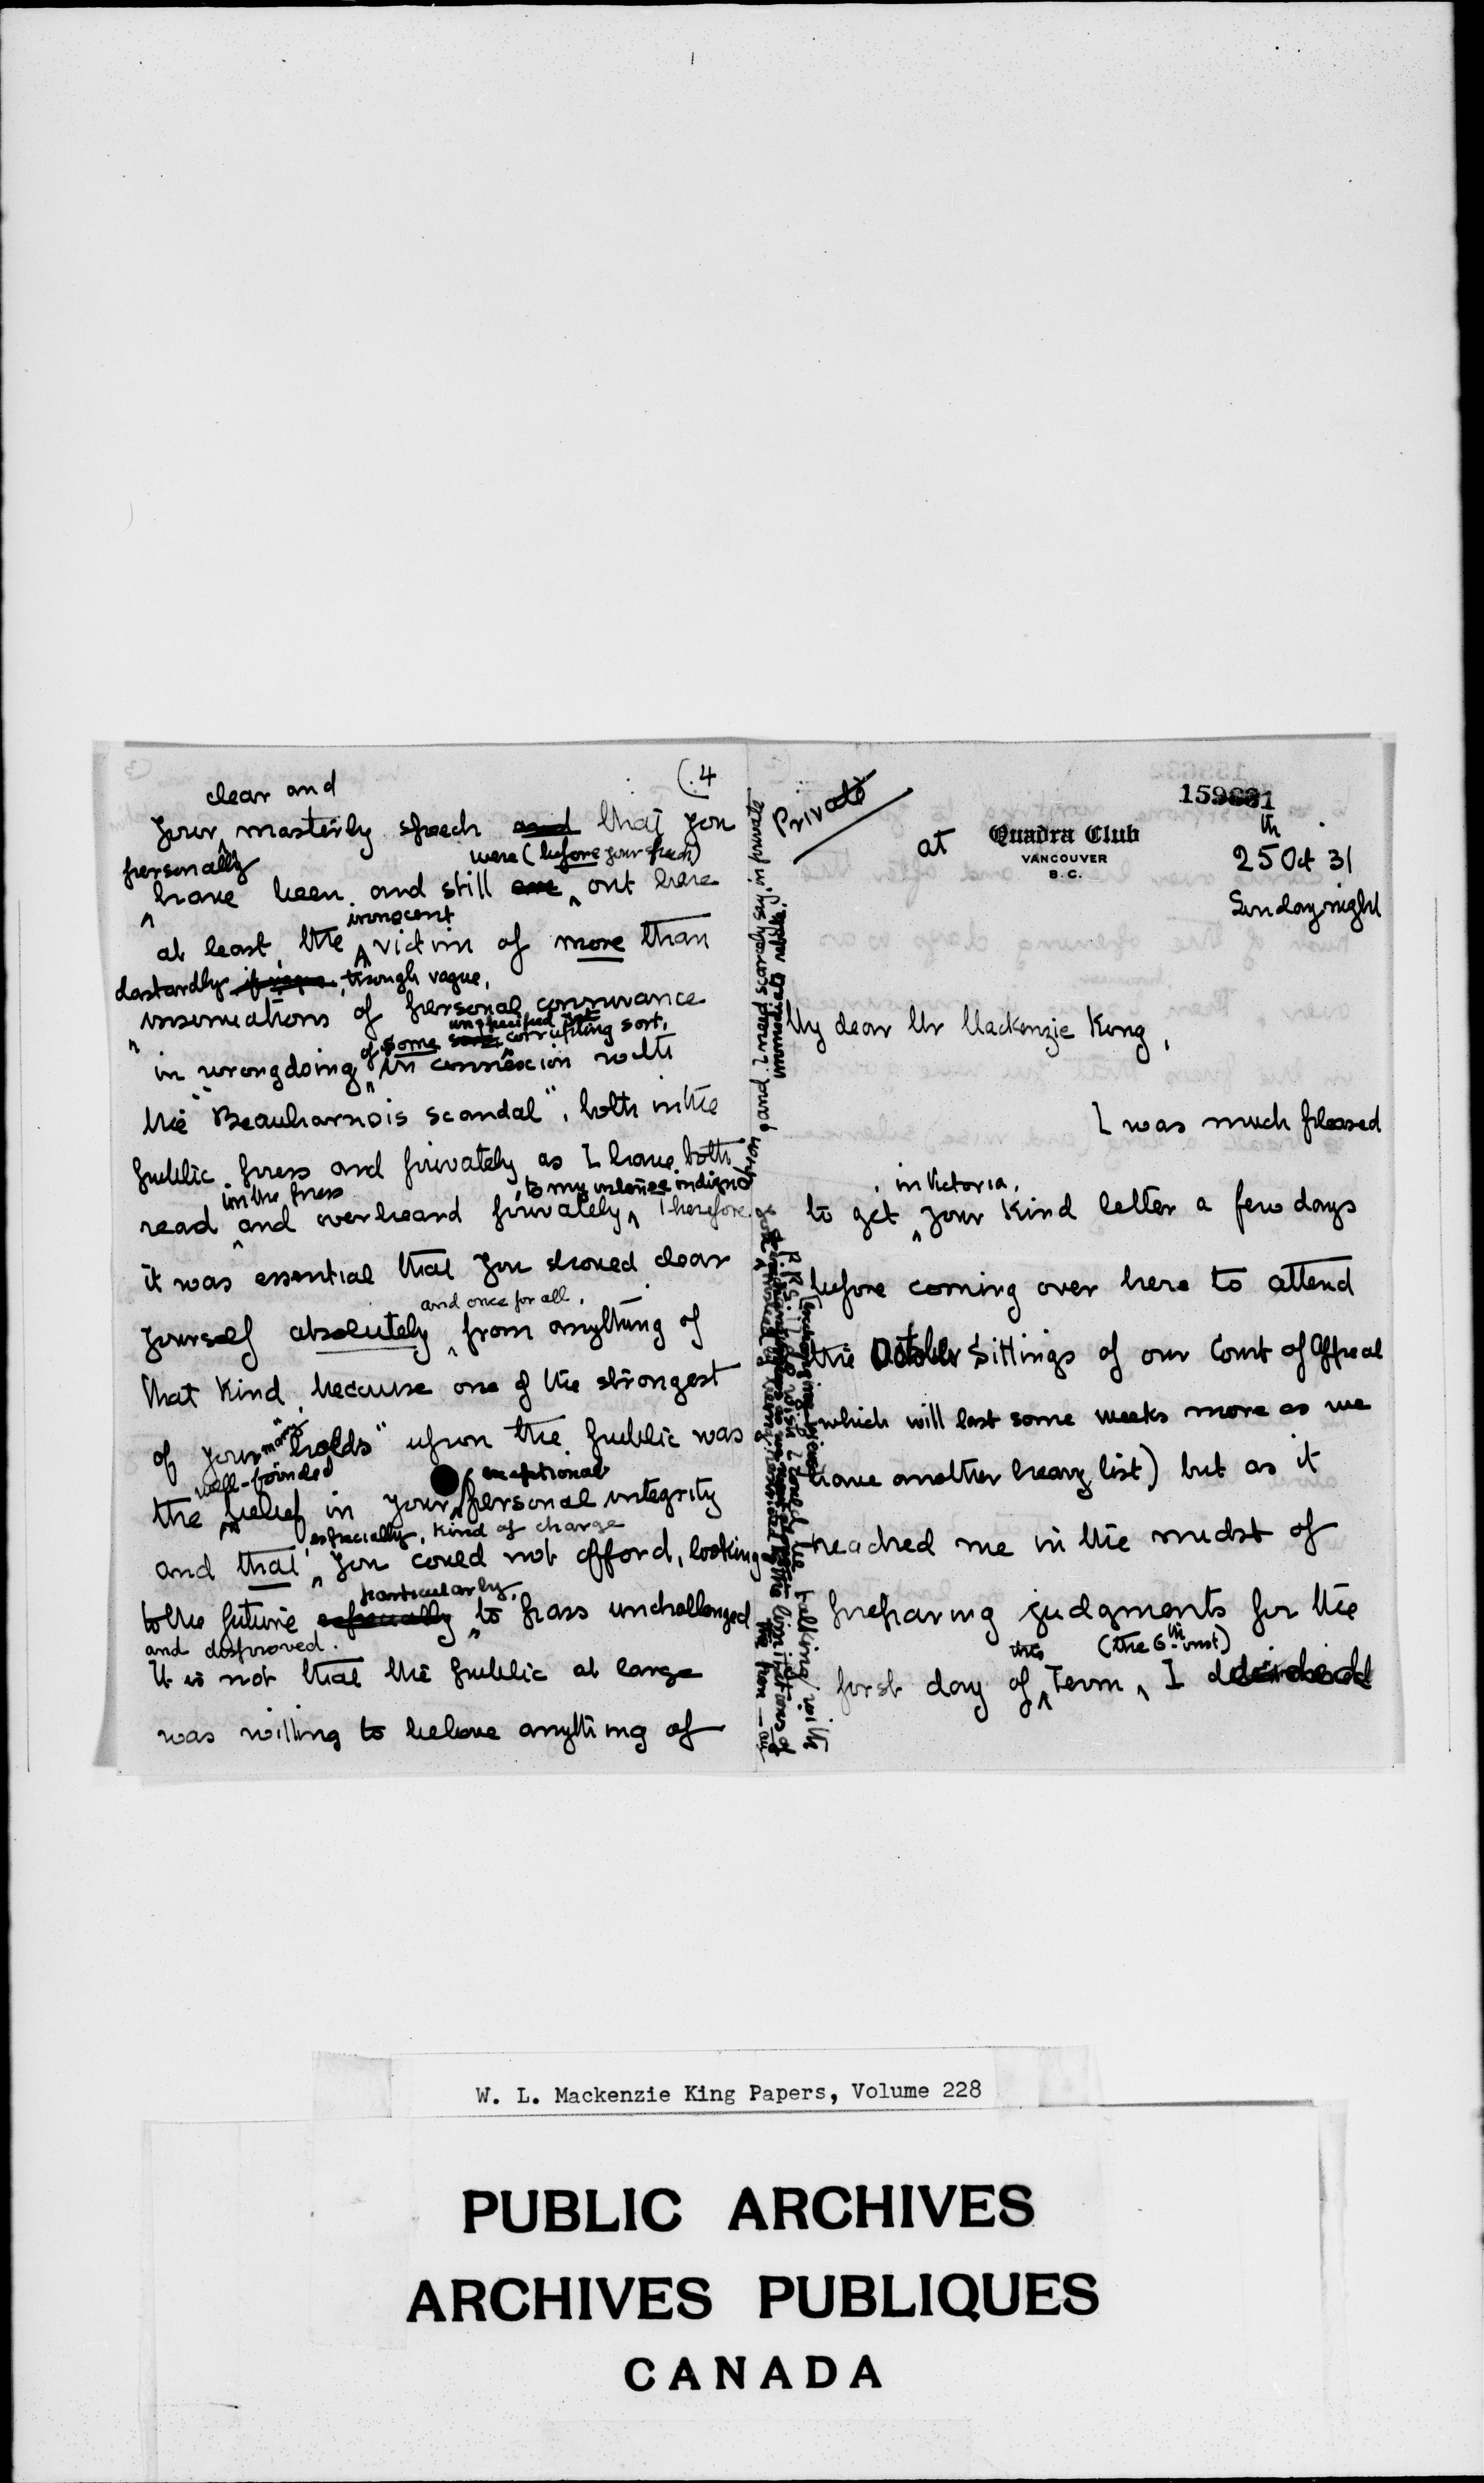 (4
clear and
your masterly speech and that you
personally were (before your speech)
have been and still are out here
innocent
at least, the victim of more than
dastardly if vague, though vague,
insinuations of personal connivance
unspecified yet
of some sort corrupting sort,
in wrongdoing in connexion with
the "Beauharnois scandal", both in the
public press and privately as I have both
in the press to my intense indigna
read and overheard privately Therefore
it was essential that you should clear
and once for all,
yourself absolutely from anything of
that kind because one of the strongest
of your many "holds" upon the public was
well-founded exceptional
the belief in your personal integrity
especially, kind of charge
and that you could not afford, looking
particularly,
to the future especially to pass unchallenged
and disproved.
It is not that the public at large
was willing to believe anything of
Private
159631
at Quadra Club
VANCOUVER
B.C.
25th Oct 31
Sunday night
My dear Mr Mackenzie King,
I was much pleased
in Victoria,
to get your kind letter a few days
before coming over here to attend
the October Sittings of our Court of Appeal
which will last some weeks more as we
have another heavy list) but as it
reached me in the midst of
preparing judgments for the
this (the 6th inst)
first day of Term I decided
W. L. Mackenzie King Papers, Volume 228
PUBLIC ARCHIVES
ARCHIVES PUBLIQUES
CANADA